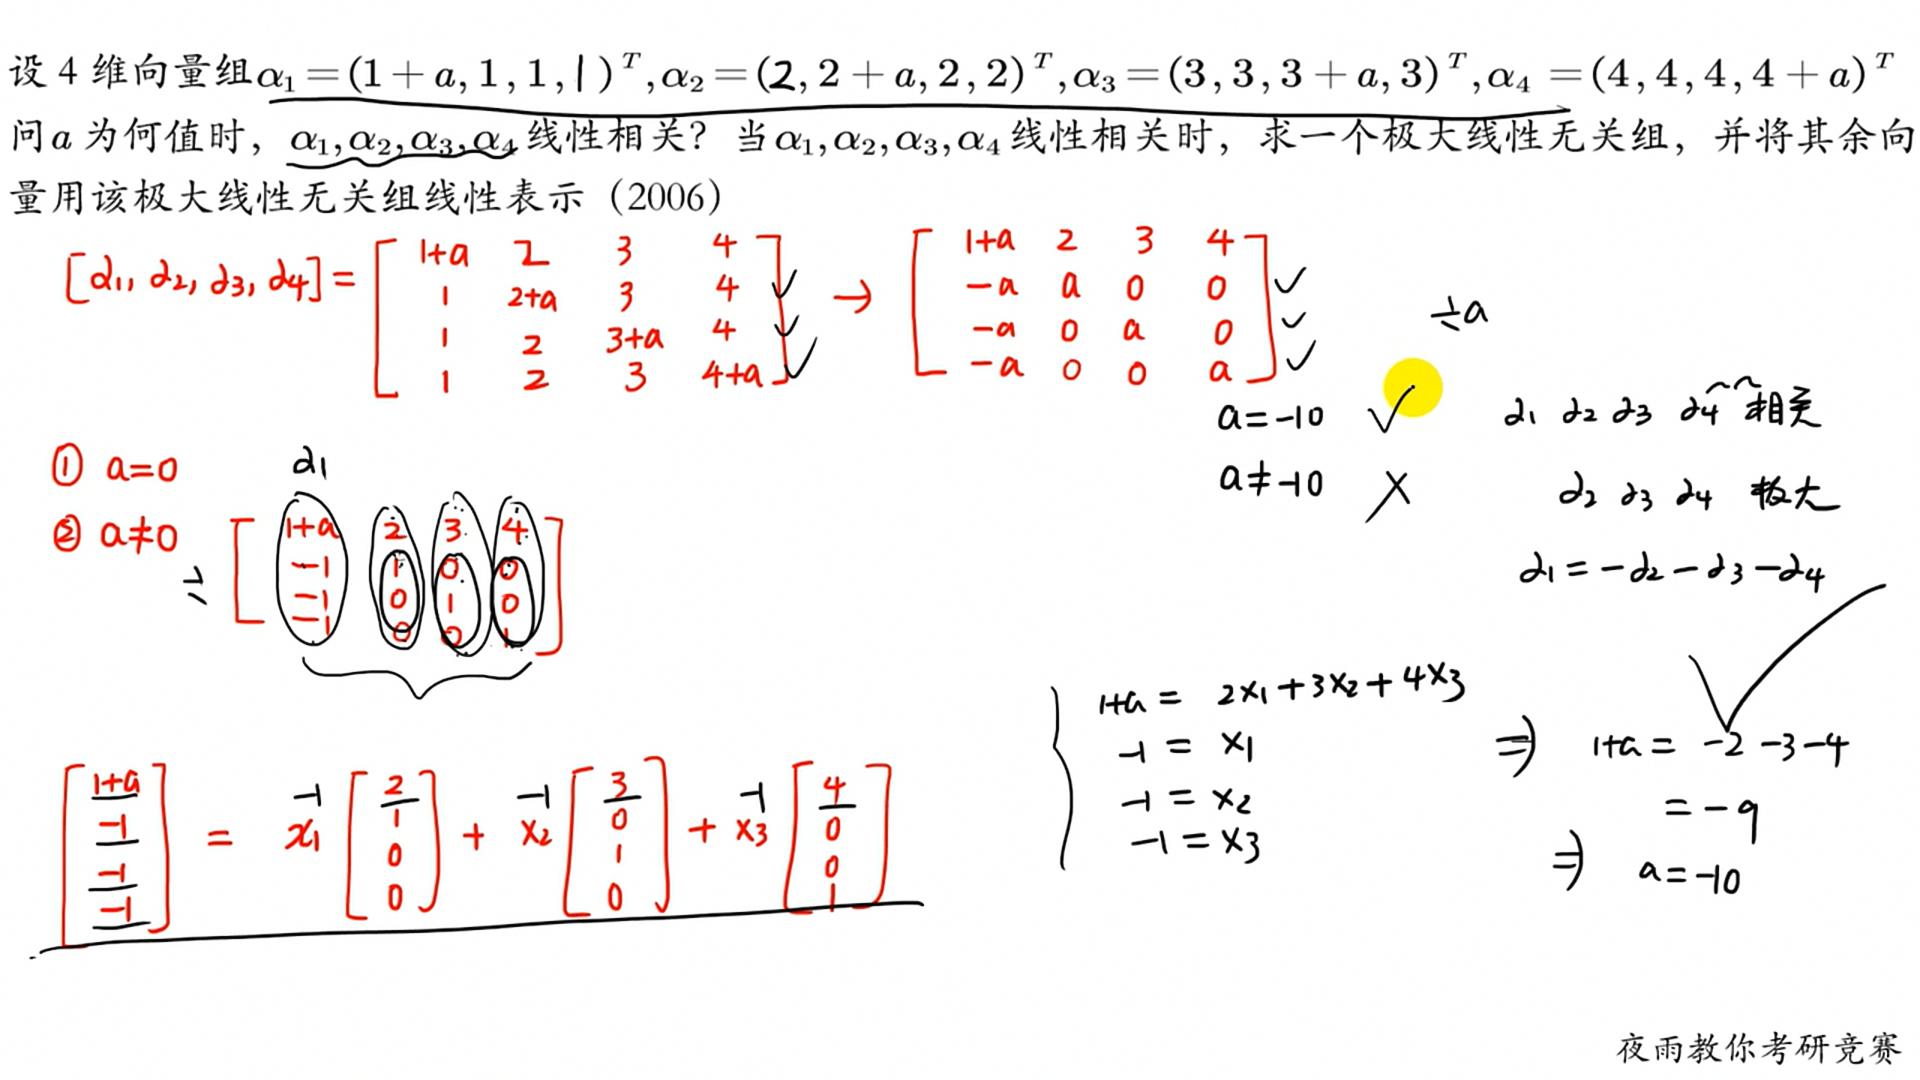 设 4 维向量组α₁=(1+a,1,1,1)ᵀ,α₂=(2,2+a,2,2)ᵀ,α₃=(3,3,3+a,3)ᵀ,α₄=(4,4,4,4+a)ᵀ
问a 为何值时，α₁,α₂,α₃,α₄线性相关？当α₁,α₂,α₃,α₄线性相关时，求一个极大线性无关组，并将其余向
量用该极大线性无关组线性表示（2006）
[α₁, α₂, α₃, α₄] = [
1+a 2 3 4
1 2+a 3 4
1 2 3+a 4
1 2 3 4+a
] → [
1+a 2 3 4
-a a 0 0
-a 0 a 0
-a 0 0 a
]
÷a
① a=0
② a≠0
÷
α₁
[
1+a 2 3 4
-1 1 0 0
-1 0 1 0
-1 0 0 1
]
a=-10 ✓ α₁ α₂ α₃ α₄ 相关
a≠-10 ✗ α₂ α₃ α₄ 极大
α₁=-α₂-α₃-α₄
[
1+a
-1
-1
-1
] = x₁ [
2
1
0
0
] + x₂ [
3
0
1
0
] + x₃ [
4
0
0
1
]
-1 -1 -1
1+a = 2x₁+3x₂+4x₃
-1 = x₁
-1 = x₂
-1 = x₃
⇒ 1+a = -2-3-4
= -9
⇒ a=-10
夜雨教你考研竞赛